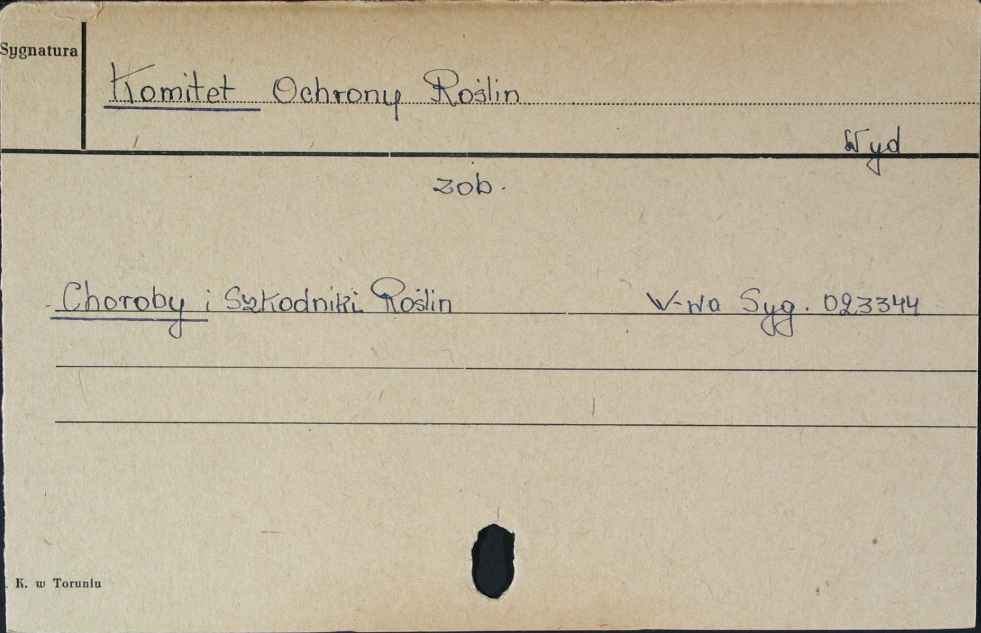 Sygnatura
Komitet Ochrony Roślin
Wyd
zob.
Choroby i Szkodniki Roślin W-wa Syg. 023344
K. w Toruniu